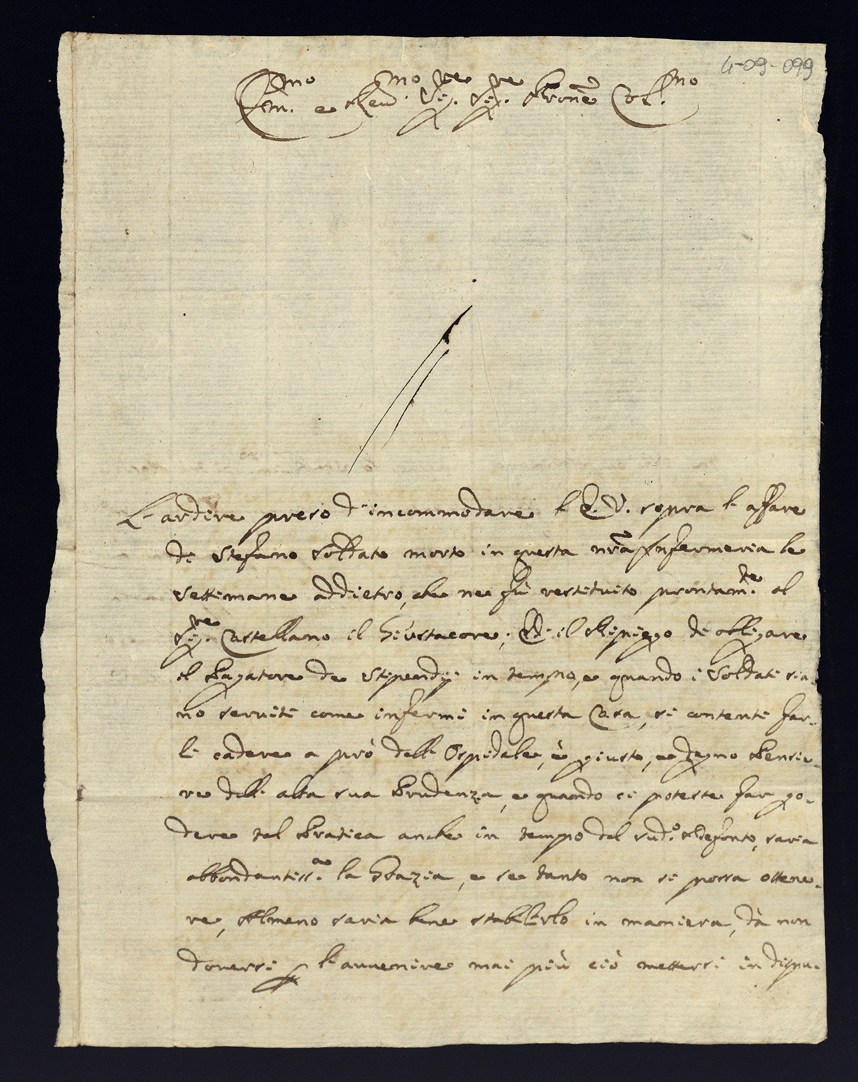 4-09-099
Ill.mo e Reu.mo Sig.re Sig.re Prone Col.mo
L'ardire preso d'incommodare l'E.V. sopra l'affare
di Stefano soldato morto in questa nr̃a Infermeria le
settimane addietro, che ne fù restituito prontam.te al
Sig.re Castellano il Giustacore; Et il Ripiego di obligare
il Pagatore de Stipendij in tempo, e quando i Soldati sia-
no seruiti come infermi in questa Casa, si contenti far-
li cadere a prò dell'Ospidale, è giusto, e degno Pensie-
re dell'alta sua Prudenza, e quando ci potesse far go-
dere tal Pratica anche in tempo del sud.o Defonto, saria
abbondantiss.a la Grazia, e se tanto non si possa ottene-
re, Almeno saria bene stabilirlo in maniera, dà non
douersi p l'auuenire mai più ciò mettersi in dispu-